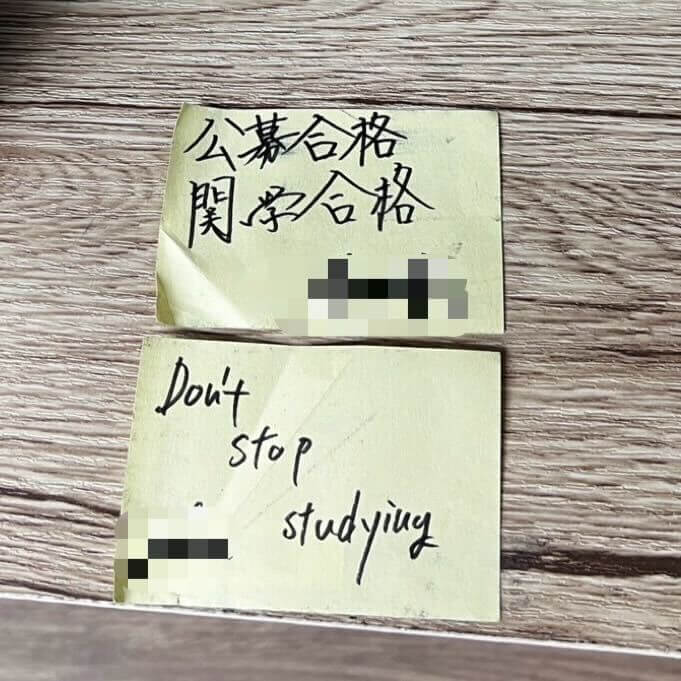 公募合格
関学合格
Don't
stop
studying